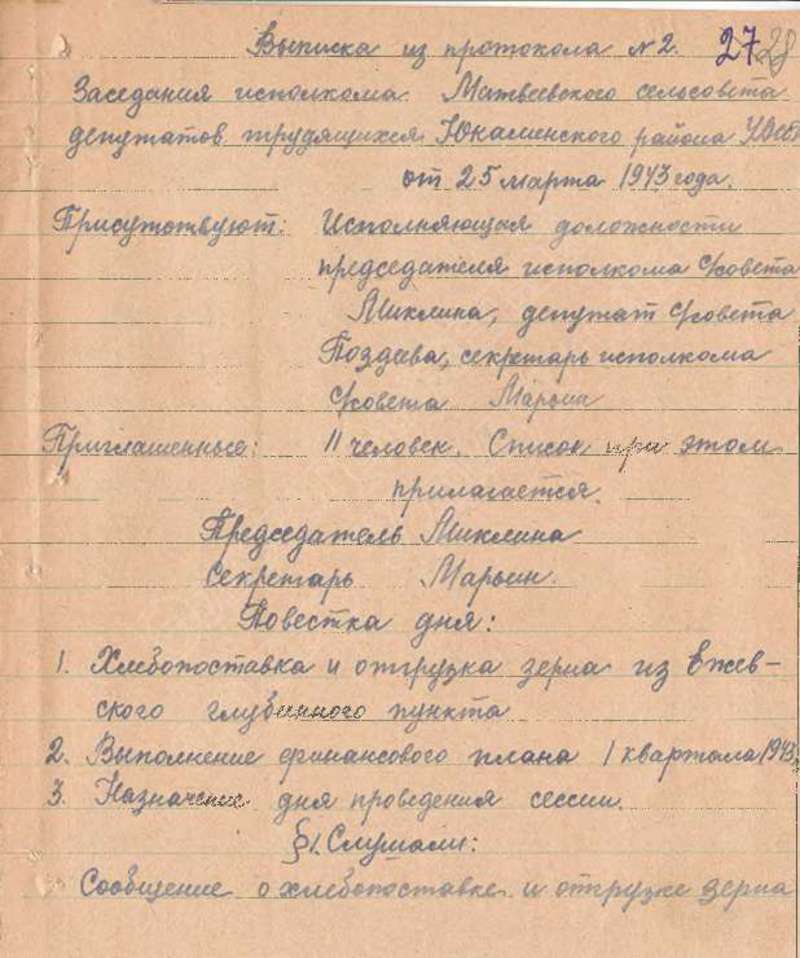 Выписка из протокола №2. 27 28
Заседания исполкома Матвеевского сельсовета
депутатов трудящихся Юкаменского района
от 25 марта 1943 года.
Присутствуют: Исполняющая должности
председателя исполкома Совета
Миклина, депутат Совета
Поздеева, секретарь исполкома
Совета Марьин
Приглашенные: 11 человек. Список при этом
прилагается.
Председатель Миклина
Секретарь Марьин.
Повестка дня:
1. Хлебопоставка и отгрузка зерна из Ежев-
ского глубинного пункта
2. Выполнение финансового плана 1 квартала 1943
3. Назначение дня проведения сессии.
§1. Слушали:
Сообщение о хлебопоставке и отгрузке зерна